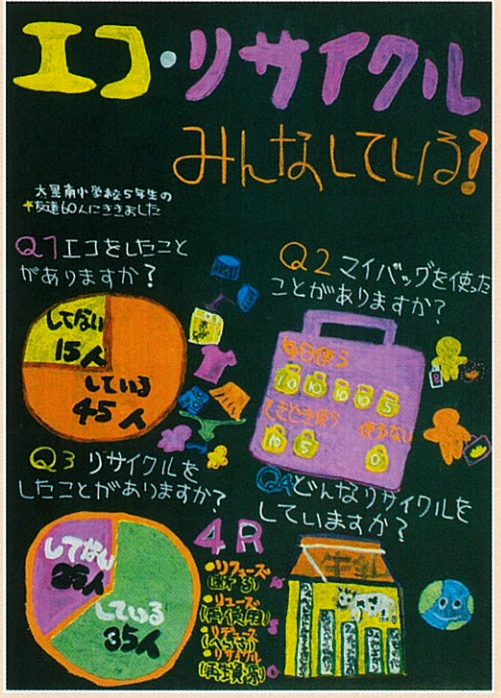 エコ・リサイクル
みんなしている?
大黒南小学校5年生の
友達60人にききました
Q1エコをしたこと
がありますか?
してない
15人
している
45人
Q2 マイバッグを使った
ことがありますか?
毎日使う
10 10 10 10 5
ときどき使う 使わない
10 5 0
Q3 リサイクルを
したことがありますか?
してない
25人
している
35人
Q4どんなリサイクルを
していますか?
4R
・リフューズ
(断る)
・リユーズ
(再使用)
・リデュース
・リサイクル
(再資源)
牛乳